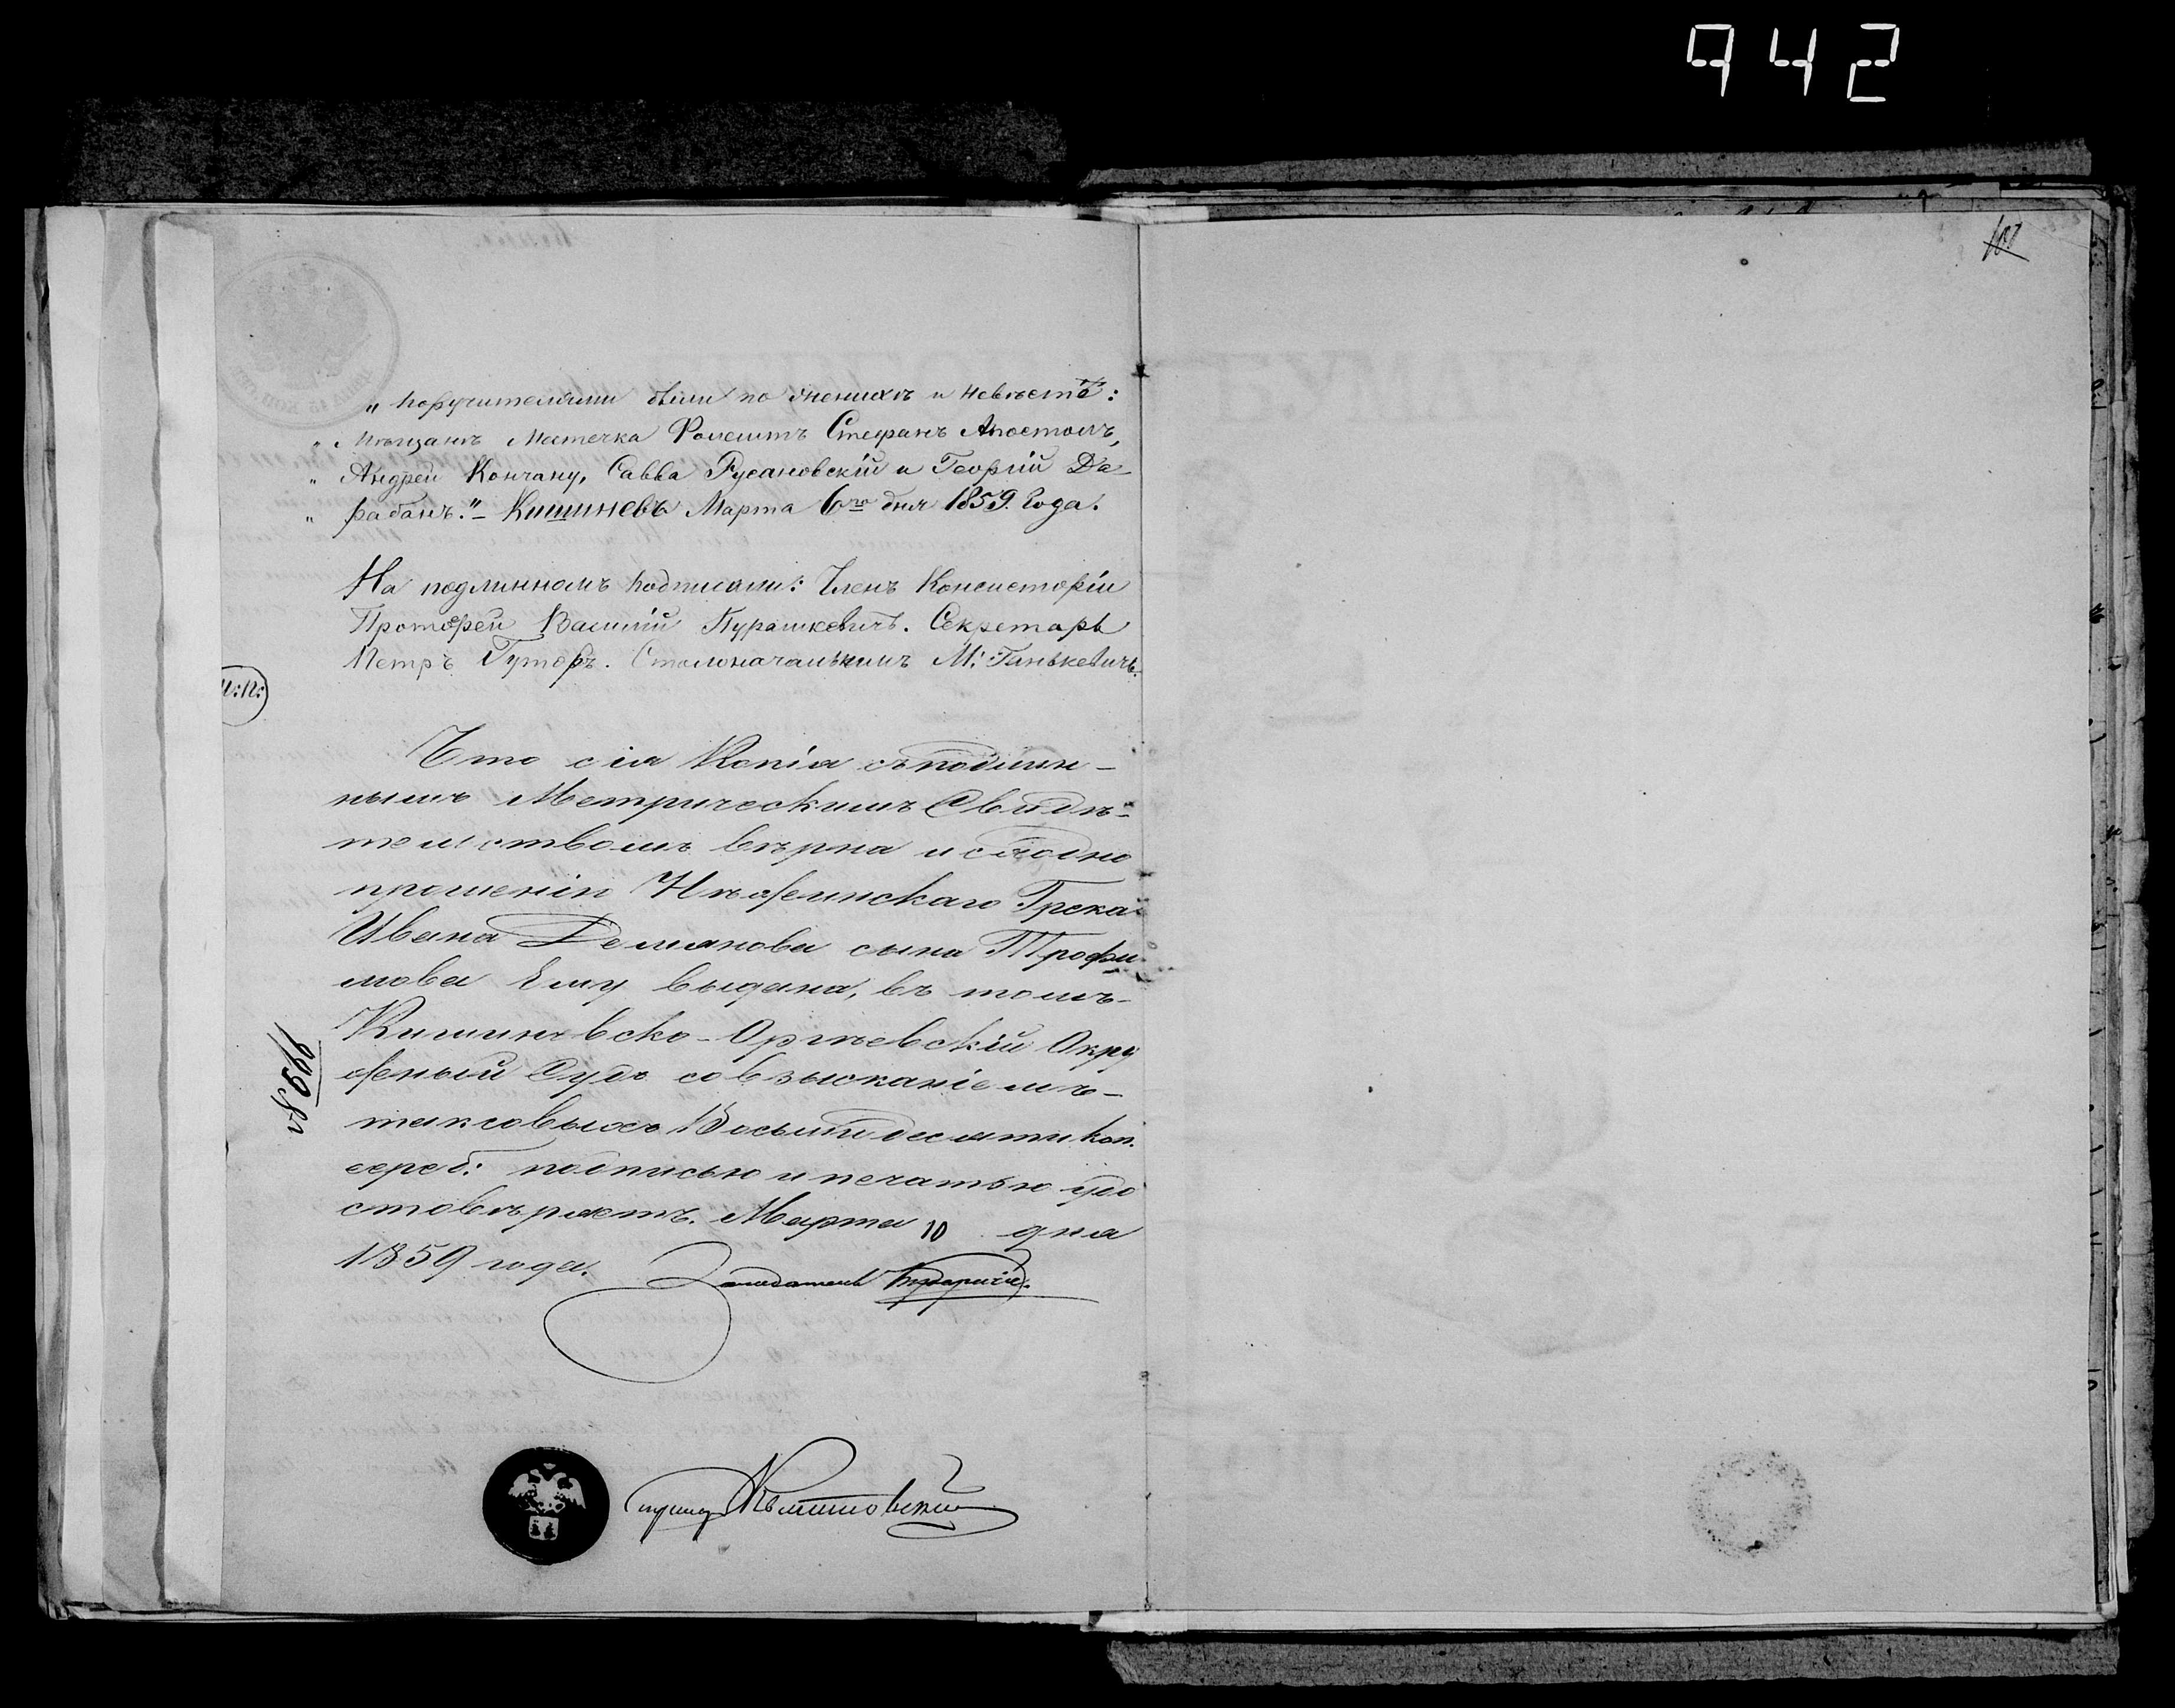 942
101
„ поручителями были по женихѣ и невѣстѣ:
„ Мѣщане Мѣстечка Фолештъ Стефанъ Апостолъ,
„ Андрей Кончану, Савва Русановскій и Георгій Да-
„ рабанъ.“ — Кишиневъ Марта 6го дня 1859. Года.
На подлинномъ подписали: Членъ Консисторіи
Протоіерей Василій Пуришкевичъ. Секретарь
Петръ Гуторъ. Столоначальникъ М: Ганькевичъ.
М:П:
Что сія Копія съ подлин-
нымъ Метрическимъ Свидѣ-
тельствомъ вѣрна и сходно
прошенію Нѣжинскаго Грека
Ивана Демянова сына Трофи-
мова Ему выдана, въ томъ-
Кишиневско-Оргѣевскій Окру
жный Судъ со взысканіемъ-
таксовыхъ Восьмидесяти коп.
сереб: подписью и печатью удо
стовѣряетъ. Марта 10 дня
1859 года.
Засѣдатель